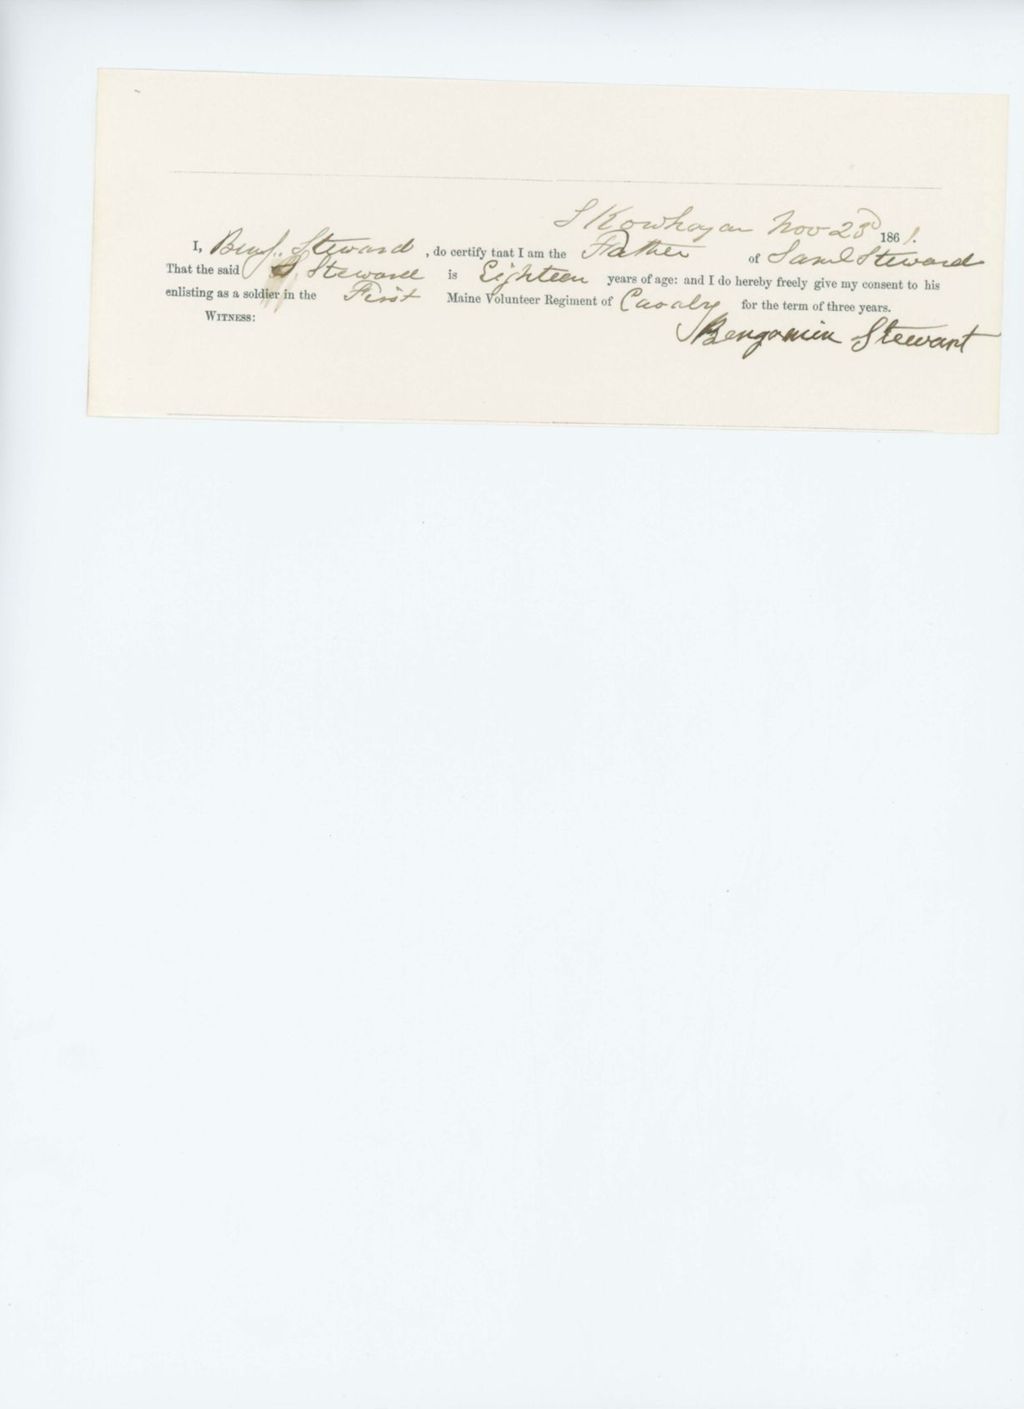 SKowhagan Nov 23d 1861.
I, Benj. Steward, do certify that I am the Father of Saml Steward
That the said S. Steward is Eighteen years of age: and I do hereby freely give my consent to his
enlisting as a soldier in the First Maine Volunteer Regiment of Cavalry for the term of three years.
WITNESS:
Bengamin Stewart